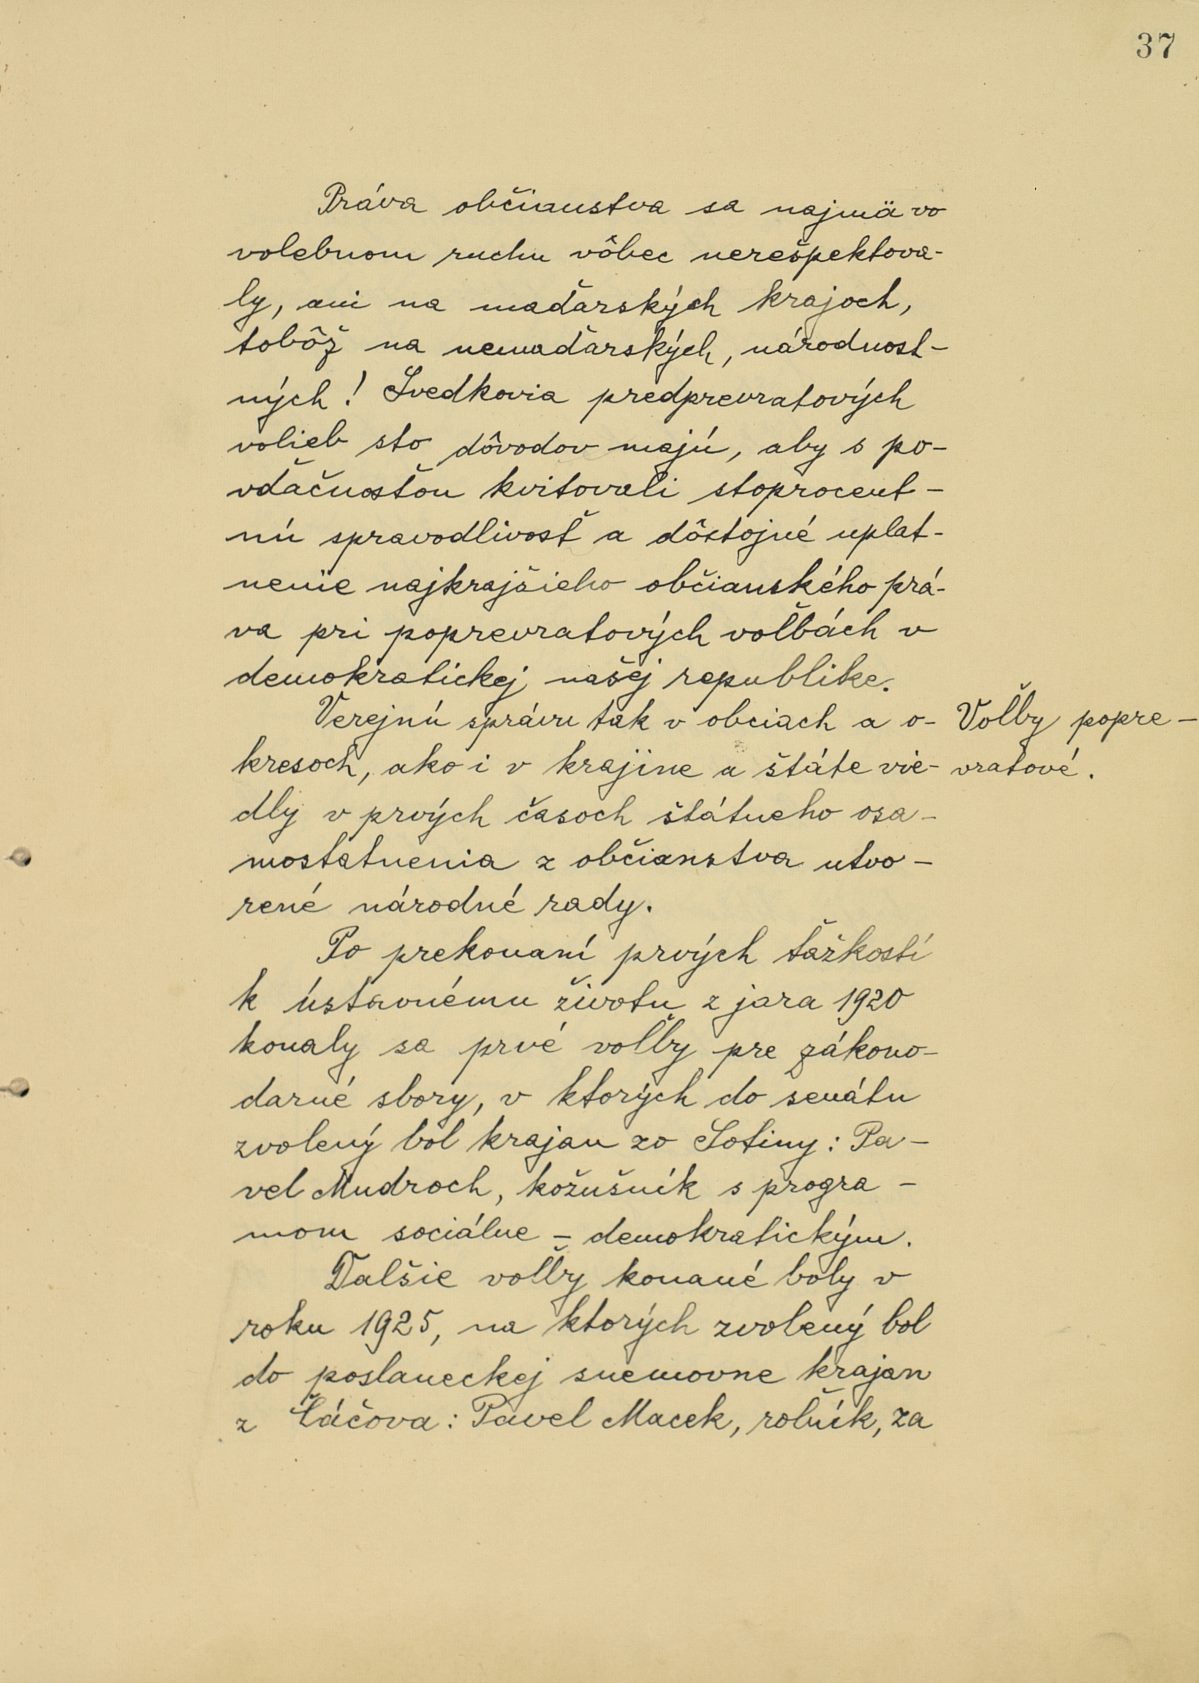 37
Práva občianstva sa najmä vo
volebnom ruchu vôbec nerešpektova-
ly, ani na maďarských krajoch,
tobôž na nemaďarských, národnost-
ných! Svedkovia predprevratových
volieb sto dôvodov majú, aby s po-
vďačnosťou kvitovali stoprocent-
nú spravodlivosť a dôstojné uplat-
nenie najkrajšieho občianského prá-
va pri poprevratových voľbách v
demokratickej našej republike.
Verejnú správu tak v obciach a o-
Voľby popre-
kresoch, ako i v krajine a štáte vie-
vratové.
dly v prvých časoch štátneho osa-
mostatnenia z občianstva utvo-
rené národné rady.
Po prekonaní prvých ťažkostí
k ústavnému životu z jara 1920
konaly sa prvé voľby pre zákono-
darné sbory, v ktorých do senátu
zvolený bol krajan zo Sotiny: Pa-
vel Mudroch, kožušník s progra-
mom sociálne-demokratickým.
Ďalšie voľby konané boly v
roku 1925, na ktorých zvolený bol
do poslaneckej snemovne krajan
z Čáčova: Pavel Macek, roľník, za